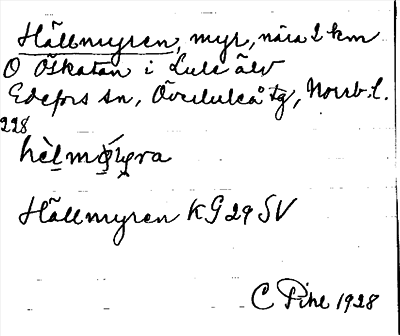 Hällmyren, myr, nära 2 km
O Öskatan i Lule älv
Edefors sn, Överluleå tg, Norrb. l.
228
Hällmyren KG 29 SV
C Pihl 1928